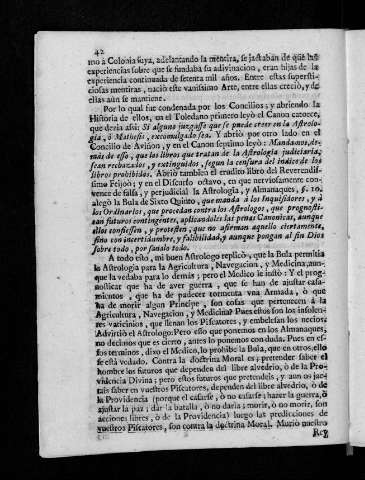 42
mo à Colonia suya, adelantando la mentira, se jactaban de que las
experiencias sobre que se fundaba su adivinacion, eran hijas de la
experiencia continuada de setenta mil años. Entre estas supersti-
ciosas mentiras, naciò este vanissimo Arte, entre ellas creciò, y de
ellas aùn se mantiene.
Por lo qual fue condenada por los Concilios; y abriendo la
Historia de ellos, en el Toledano primero leyò el Canon catorce,
que deria assi: Si alguno juzgasse que se puede creer en la Astrolo-
gia, ò Mathesis, excomulgado sea. Y abriò por otro lado en el
Concilio de Aviñon, y en el Canon septimo leyò: Mandamos, de-
màs de esso, que los libros que tratan de la Astrologia judiciaria,
sean rechazados, y extinguidos, segun la censura del indice de los
libros prohibidos. Abriò tambien el erudito libro del Reverendis-
simo Feijoò; y en el Discurso octavo, en que nerviosamente con-
vence de falsa, y perjudicial la Astrologia, y Almanaques, §. 10.
alegò la Bula de Sixto Quinto, que manda à los Inquisidores, y à
los Ordinarios, que procedan contra los Astrologos, que pronosti-
can futuros contingentes, aplicandoles las penas Canonicas, aunque
ellos confiessen, y protesten, que no afirman aquello ciertamente,
sino con incertidumbre, y falibilidad, y aunque pongan al fin Dios
sobre todo, por sanalo todo.
A todo esto, mi buen Astrologo replicò, que la Bula permitia
la Astrologia para la Agricultura, Navegacion, y Medicina, aun-
que la vedaba para lo demàs; pero el Medico le instò: Y el prog-
nosticar que ha de aver guerra, que se han de ajustar casa-
mientos, que ha de padecer tormenta una Armada, ò que
ha de morir algun Principe, son cosas que pertenecen à la
Agricultura, Navegacion, y Medicina? Pues estos son los insolen-
tes vaticinios, que llenan los Piscatores, y embelesan los necios.
Advirtiò el Astrologo: Pero esso que ponemos en los Almanaques,
no decimos que es cierto, antes lo ponemos con duda. Pues en es-
sos terminos, dixo el Medico, lo prohibe la Bula, que en otros, ello
se està vedado. Contra la doctrina Moral es, pretender saber el
hombre los futuros que dependen del libre alvedrio, ò de la Pro-
videncia Divina; pero estos futuros que pretendeis, y aun os jac-
tais saber en vuestros Piscatores, dependen del libre alvedrio, ò de
la Providencia (porque el casarse, ò no casarse; hacer la guerra, ò
ajustar la paz; dar la batalla, ò no darla; morir, ò no morir, son
acciones libres, ò de la Providencia) luego las predicciones de
vuestros Piscatores, son contra la doctrina Moral. Muriò nuestro
Rey